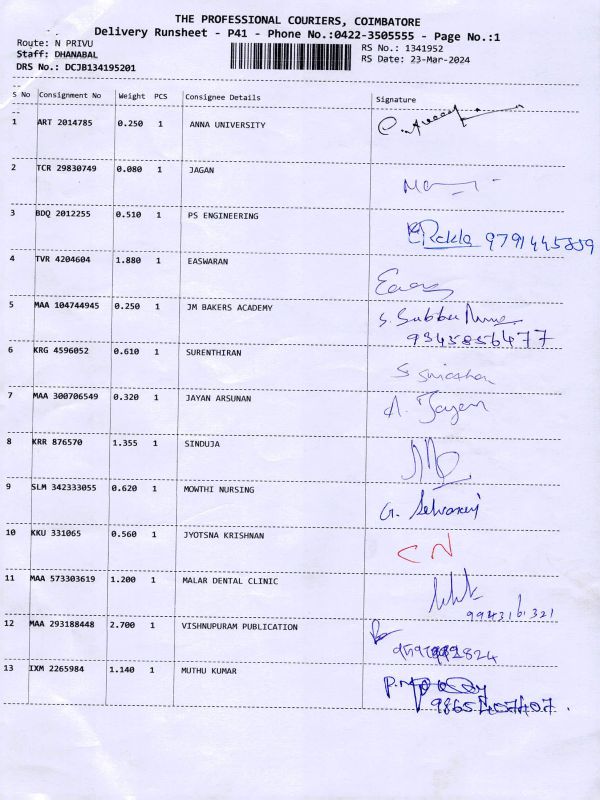 THE PROFESSIONAL COURIERS, COIMBATORE
Delivery Runsheet - P41 - Phone No.:0422-3505555 - Page No.:1
Route: N PRIVU RS No.: 1341952
Staff: DHANABAL RS Date: 23-Mar-2024
DRS No.: DCJB134195201
S No Consignment No Weight PCS Consignee Details Signature
1 ART 2014785 0.250 1 ANNA UNIVERSITY
2 TCR 29830749 0.080 1 JAGAN
3 BDQ 2012255 0.510 1 PS ENGINEERING
9791445859
4 TVR 4204604 1.880 1 EASWARAN
5 MAA 104744945 0.250 1 JM BAKERS ACADEMY
9345856477
6 KRG 4596052 0.610 1 SURENTHIRAN
7 MAA 300706549 0.320 1 JAYAN ARSUNAN A. Jayan
8 KRR 876570 1.355 1 SINDUJA
9 SLM 342333055 0.620 1 MOWTHI NURSING G. Selvaraj
10 KKU 331065 0.560 1 JYOTSNA KRISHNAN CN
11 MAA 573303619 1.200 1 MALAR DENTAL CLINIC
9943161321
12 MAA 293188448 2.700 1 VISHNUPURAM PUBLICATION
13 IXM 2265984 1.140 1 MUTHU KUMAR